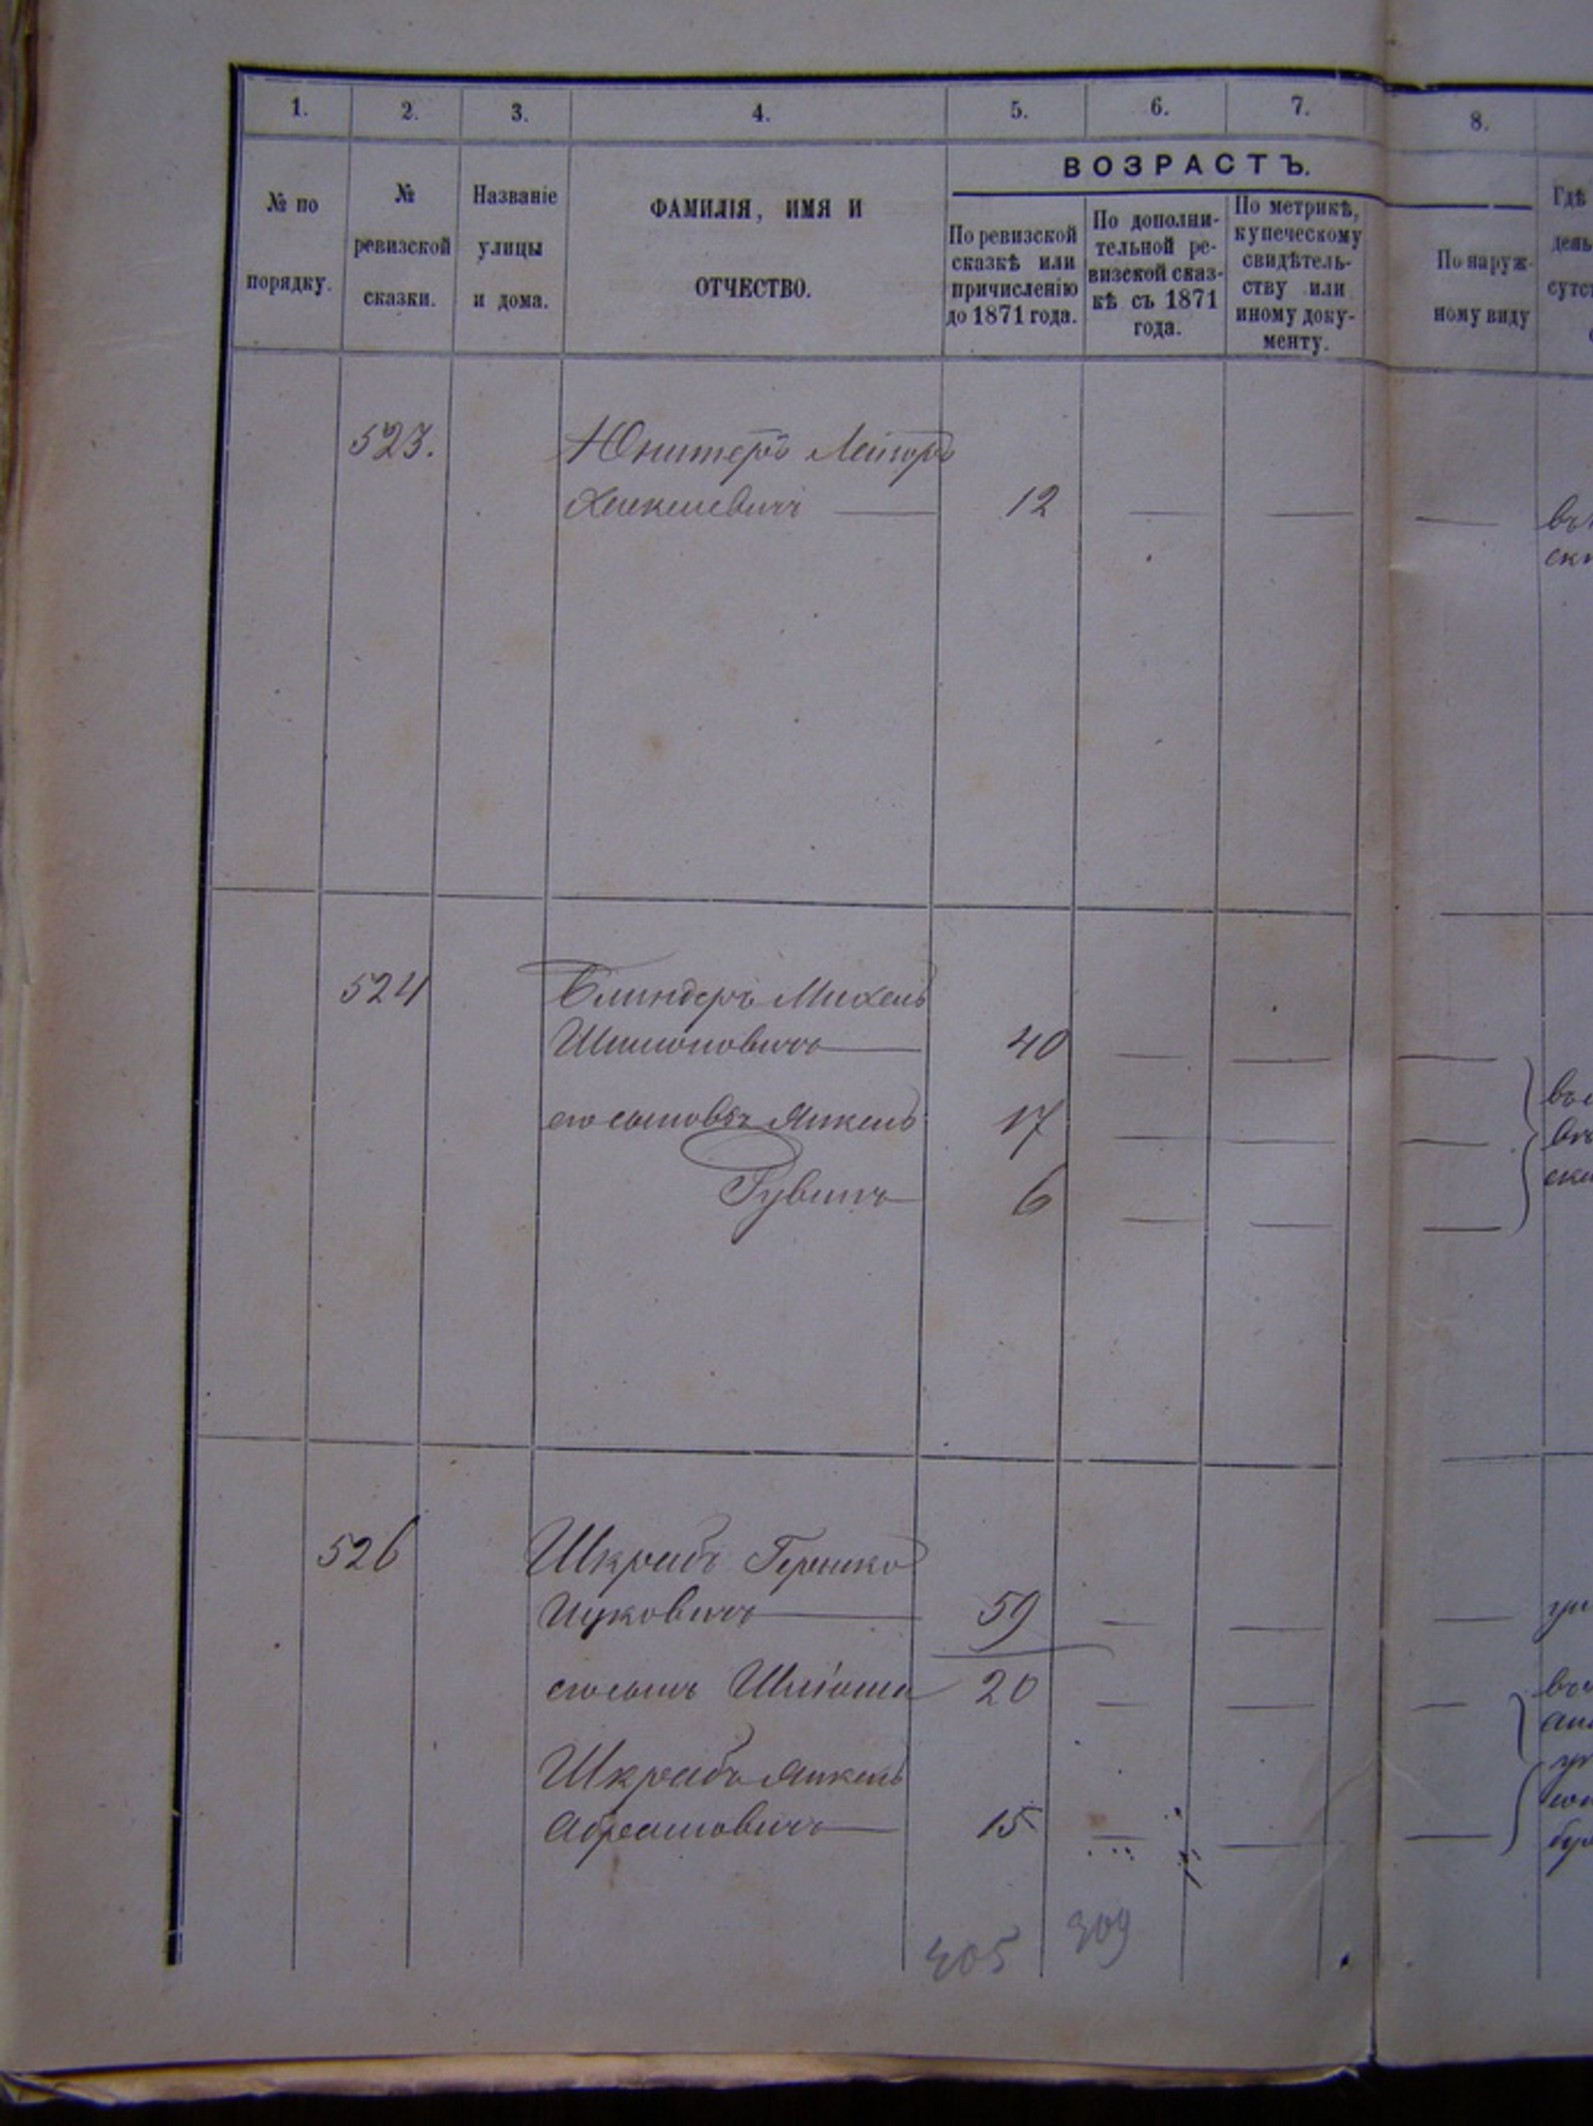 1. 2. 3. 4. 5. 6. 7. 8.
ВОЗРАСТЪ.
№ по
порядку.
№
ревизской
сказки.
Названіе
улицы
и дома.
ФАМИЛІЯ, ИМЯ И
ОТЧЕСТВО.
По ревизской
сказкѣ или
причисленію
до 1871 года.
По дополни-
тельной ре-
визской сказ-
кѣ съ 1871
года.
По метрикѣ,
купеческому
свидѣтель-
ству или
иному доку-
менту.
По наруж-
ному виду
Гдѣ
день
523. Юнитеръ
12
524 Блиндеръ Михель
Шимоновичъ 40
его сыновья Янкель 17
Рувинъ 6
526 Шкрабъ Гершко
Ицковичъ 59
его сынъ Шлiома 20
Шкрабъ Янкель
Абрамовичъ 15
305 309